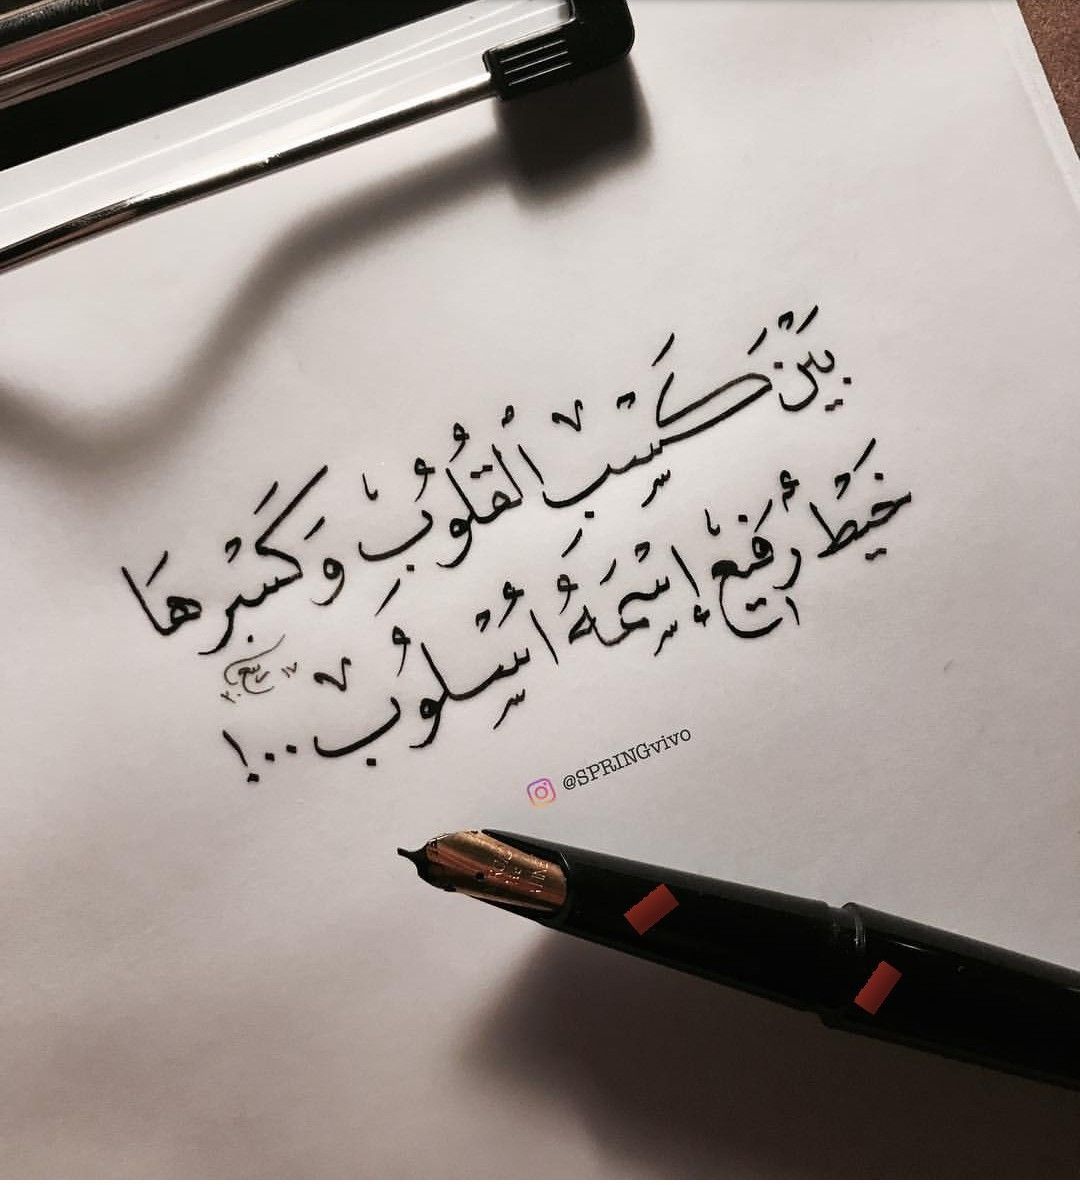 بَيْنَ كَسْبِ الْقُلُوبِ وَكَسْرِهَا
خَيْطٌ رَفِيعٌ إِسْمُهُ أُسْلُوبٌ..!
ربيع
@SPRINGvivo